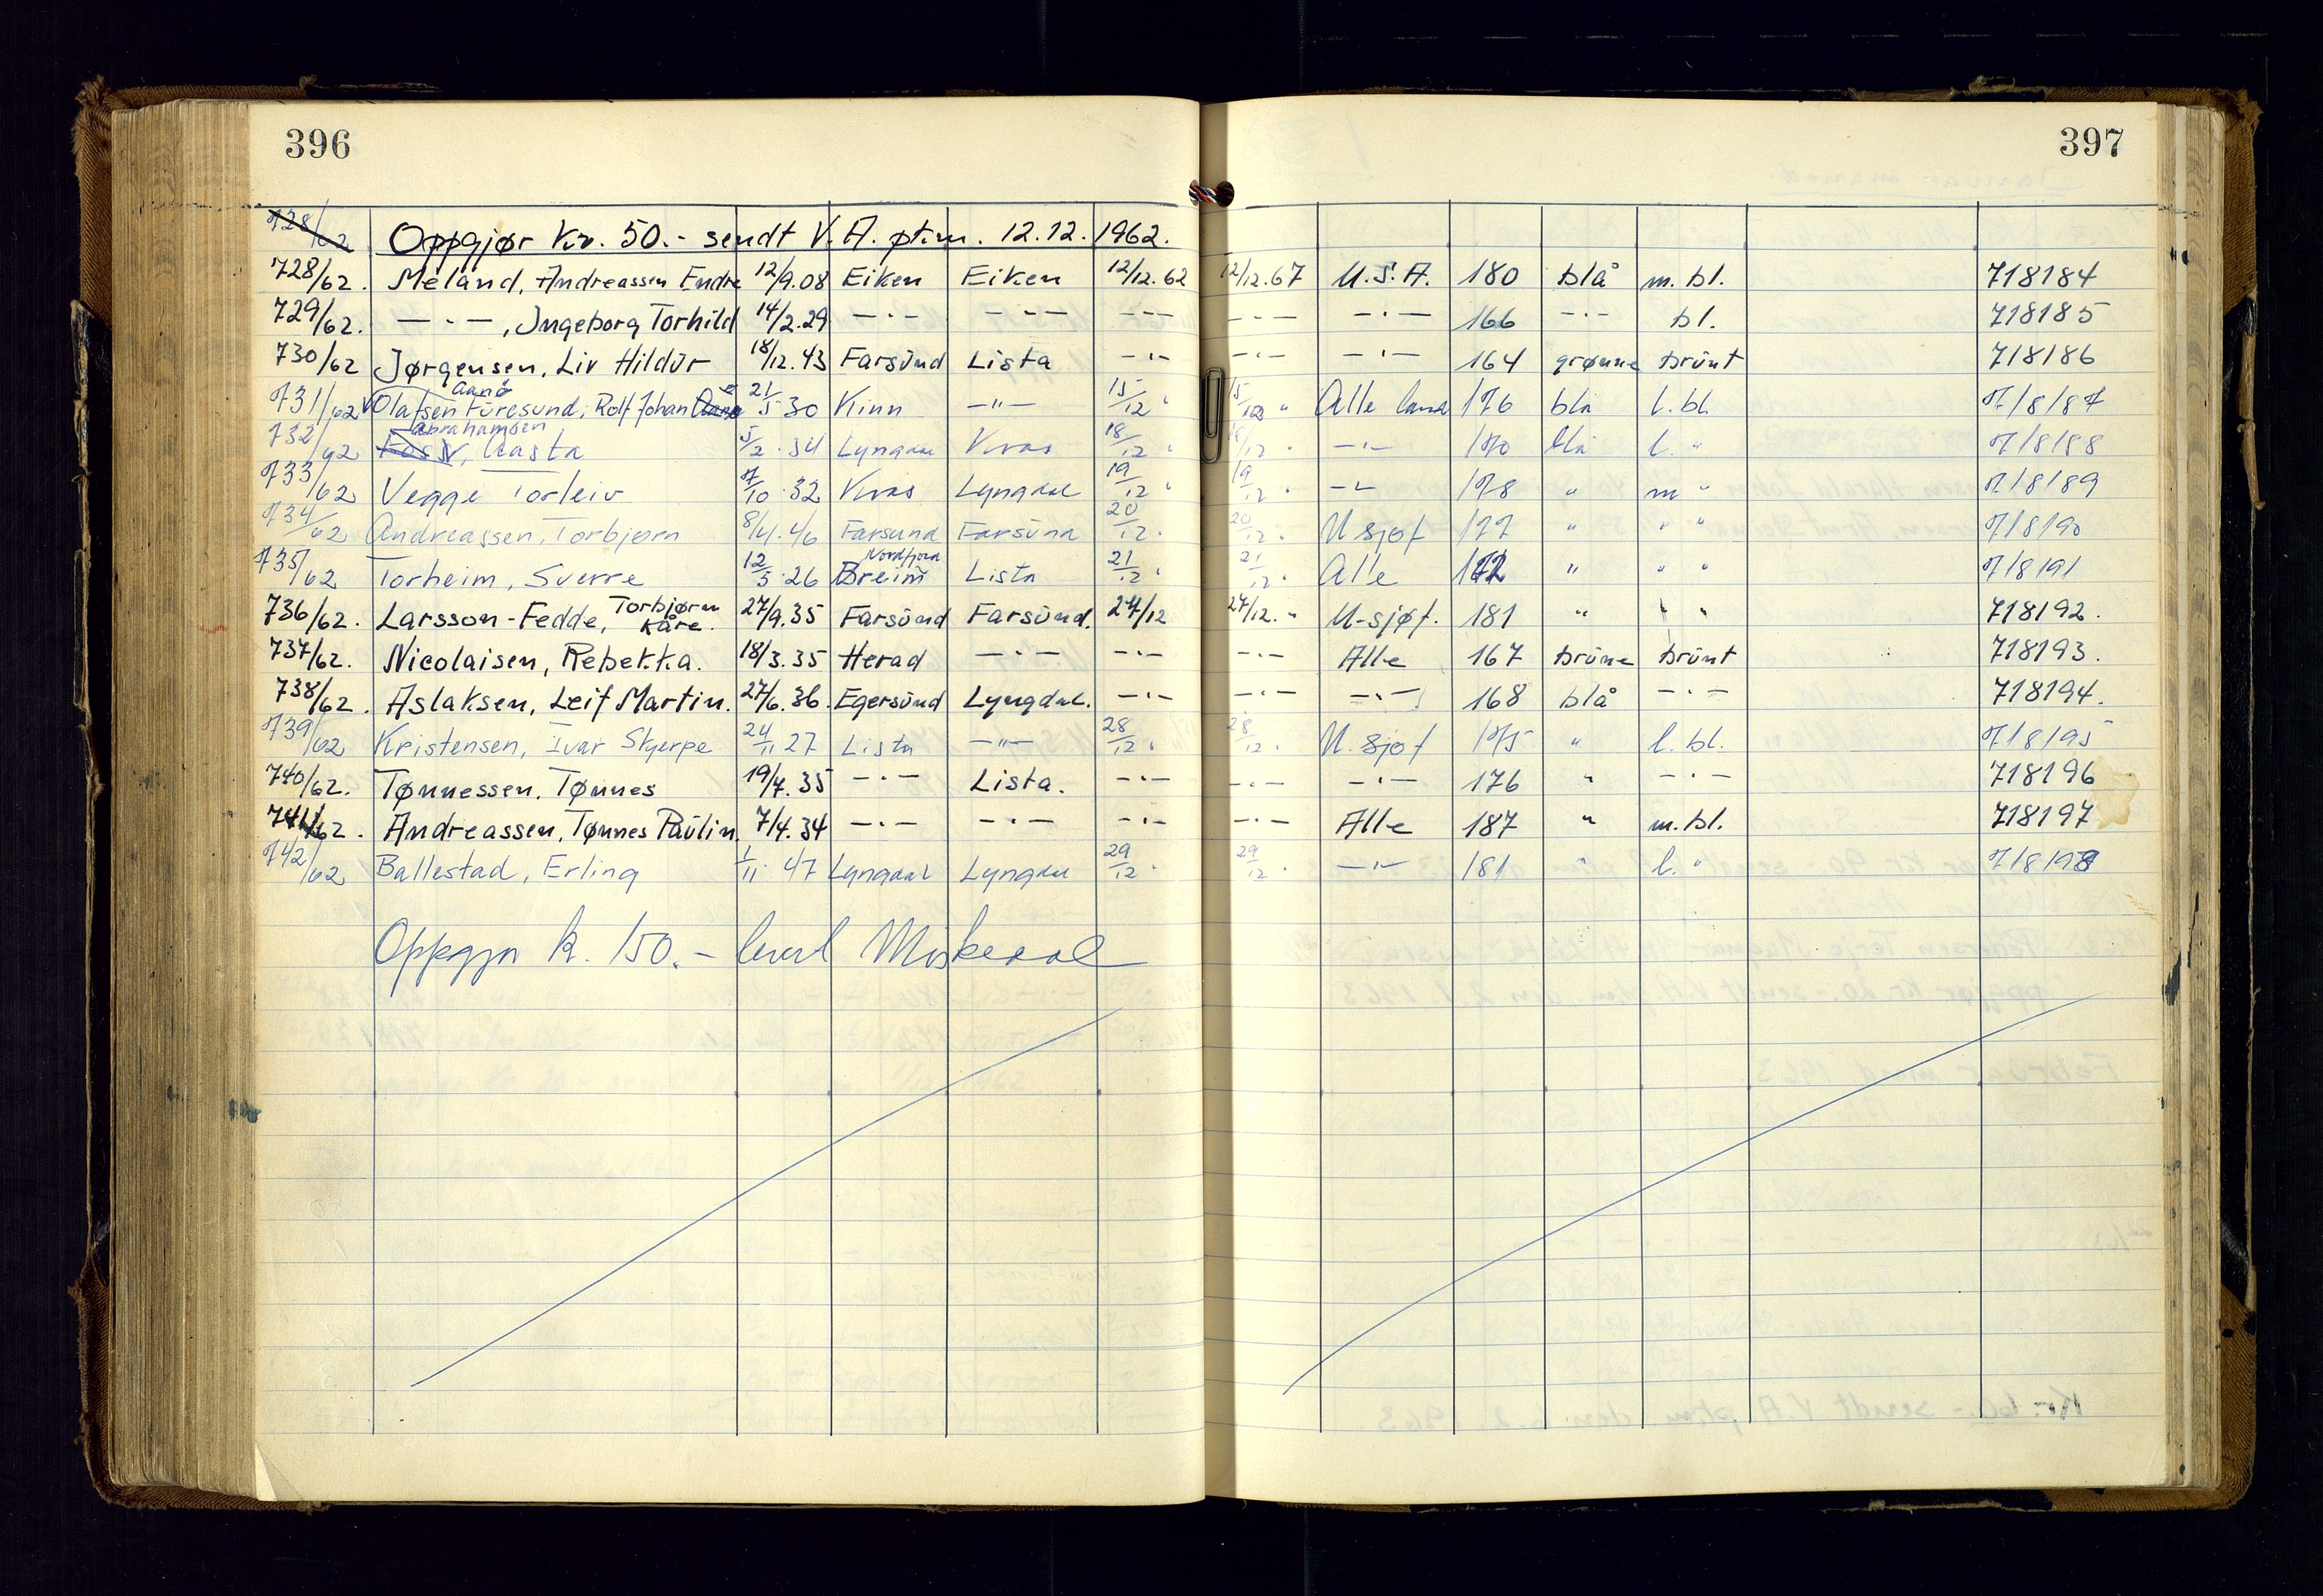 396
397
728/62 Oppgjør kr. 50.- sendt V.A. ptm. 12.12.1962.
728/62. Meland, Andreassen Endre 12/9.08 Eiken Eiken 12/12.62 12/12.67 U.S.A. 180 blå m. bl. 718184
729/62. —·—, Ingeborg Torhild 14/2.29 —·— —·— —·— —·— —·— 166 —·— bl. 718185
730/62 Jørgensen, Liv Hildur 18/12.43 Farsund Lista —·— —·— —·— 164 grønne brunt 718186
Aanö
731/62 Olafsen Furesund, Rolf Johan 21/5 30 Kinn —"— 15/12 " 15/12 " Alle land 176 blå l. bl. 718187
Abrahamsen
732/62 Foss, Aasta 5/2.34 Lyngdal Kvås 18/12 " 18/12 " —"— 170 blå l. " 718188
733/62 Vegge Torleiv 7/10.32 Kvås Lyngdal 19/12 " 19/12 " —"— 178 " m " 718189
734/62 Andreassen, Torbjørn 8/4.46 Farsund Farsund 20/12 " 20/12 " U sjøf 177 " " " 718190
Nordfjord
735/62 Torheim, Sverre 12/5.26 Breim Lista 21/12 " 21/12 " Alle 172 " " " 718191
736/62. Larsson-Fedde, Torbjørn Kåre. 27/9.35 Farsund Farsund. 27/12 27/12. " U-sjøf. 181 " " " 718192.
737/62. Nicolaisen, Rebekka. 18/3.35 Herad —·— —·— —·— Alle 167 brune brunt 718193.
738/62. Aslaksen, Leif Martin. 27/6.36. Egersund Lyngdal. —·— —·— —·— 168 blå —·— 718194.
739/62 Kristensen, Ivar Skjerpe 24/11 27 Lista —"— 28/12 " 28/12 " U. sjøf 175 " l. bl. 718195
740/62. Tønnessen, Tønnes 19/4.35 —·— Lista. —·— —·— —·— 176 " —·— 718196
741/62. Andreassen, Tønnes Paulin. 7/4.34 —·— —·— —·— —·— Alle 187 " m. bl. 718197
742/62 Ballestad, Erling 1/11.47 Lyngdal Lyngdal 29/12 " 29/12 " —"— 181 " l. " 718198
Oppgjør kr. 150.-